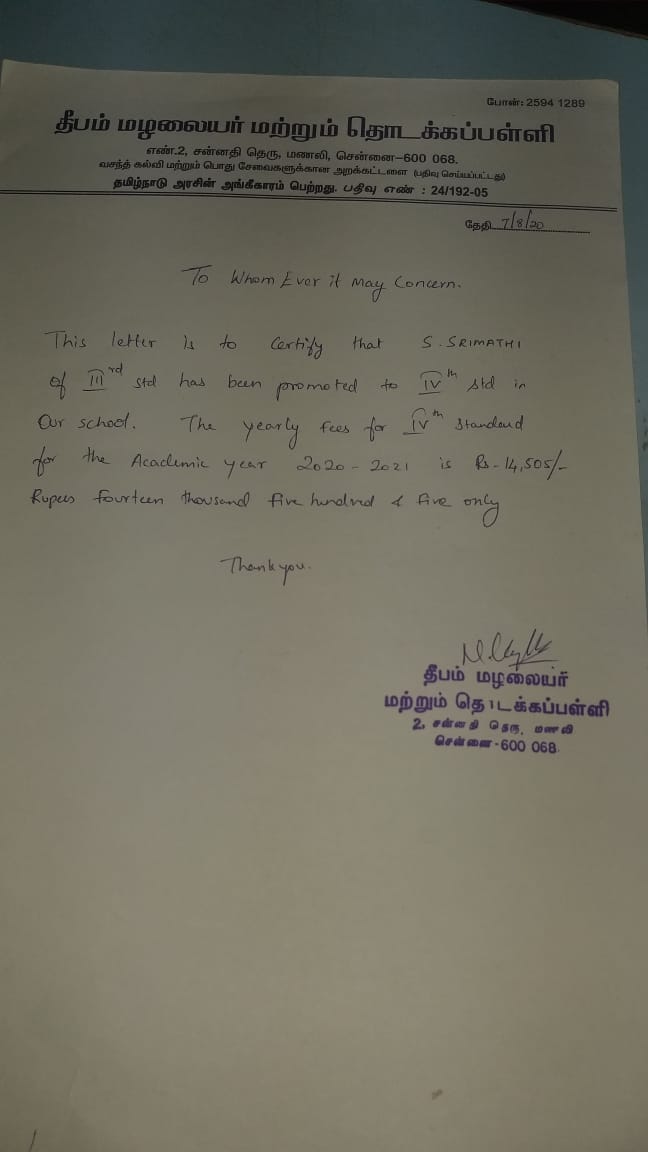 போன்: 2594 1289
தீபம் மழலையர் மற்றும் தொடக்கப்பள்ளி
எண்.2, சன்னதி தெரு, மணலி, சென்னை-600 068.
வசந்த் கல்வி மற்றும் பொது சேவைகளுக்கான அறக்கட்டளை (பதிவு செய்யப்பட்டது)
தமிழ்நாடு அரசின் அங்கீகாரம் பெற்றது. பதிவு எண் : 24/192-05
தேதி 7/8/20
To Whom Ever it May Concern.
This letter is to Certify that S. SRIMATHI
of III rd std has been promoted to IV th std in
Our school. The yearly Fees for IV th Standard
for the Academic year 2020-2021 is Rs-14,505/-
Rupees fourteen thousand five hundred & five only
Thankyou.
தீபம் மழலையர்
மற்றும் தொடக்கப்பள்ளி
2, சன்னதி தெரு, மணலி
சென்னை-600 068.